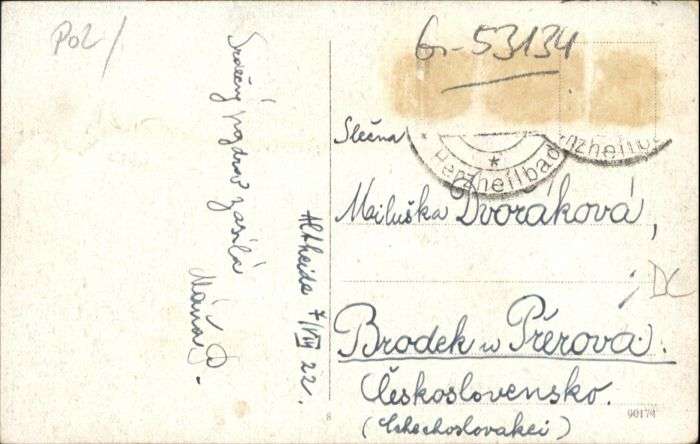 Pol /
Gr-53134
Srdečný
pozdrav zasílá
Máňa D.
Altheide 7/VIII 22.
Slečna
Herzheilbad
rzheilba
Miluška Dvořáková,
DC
Brodek u Přerova.
Československo.
(Tchechoslovakei)
8
90174